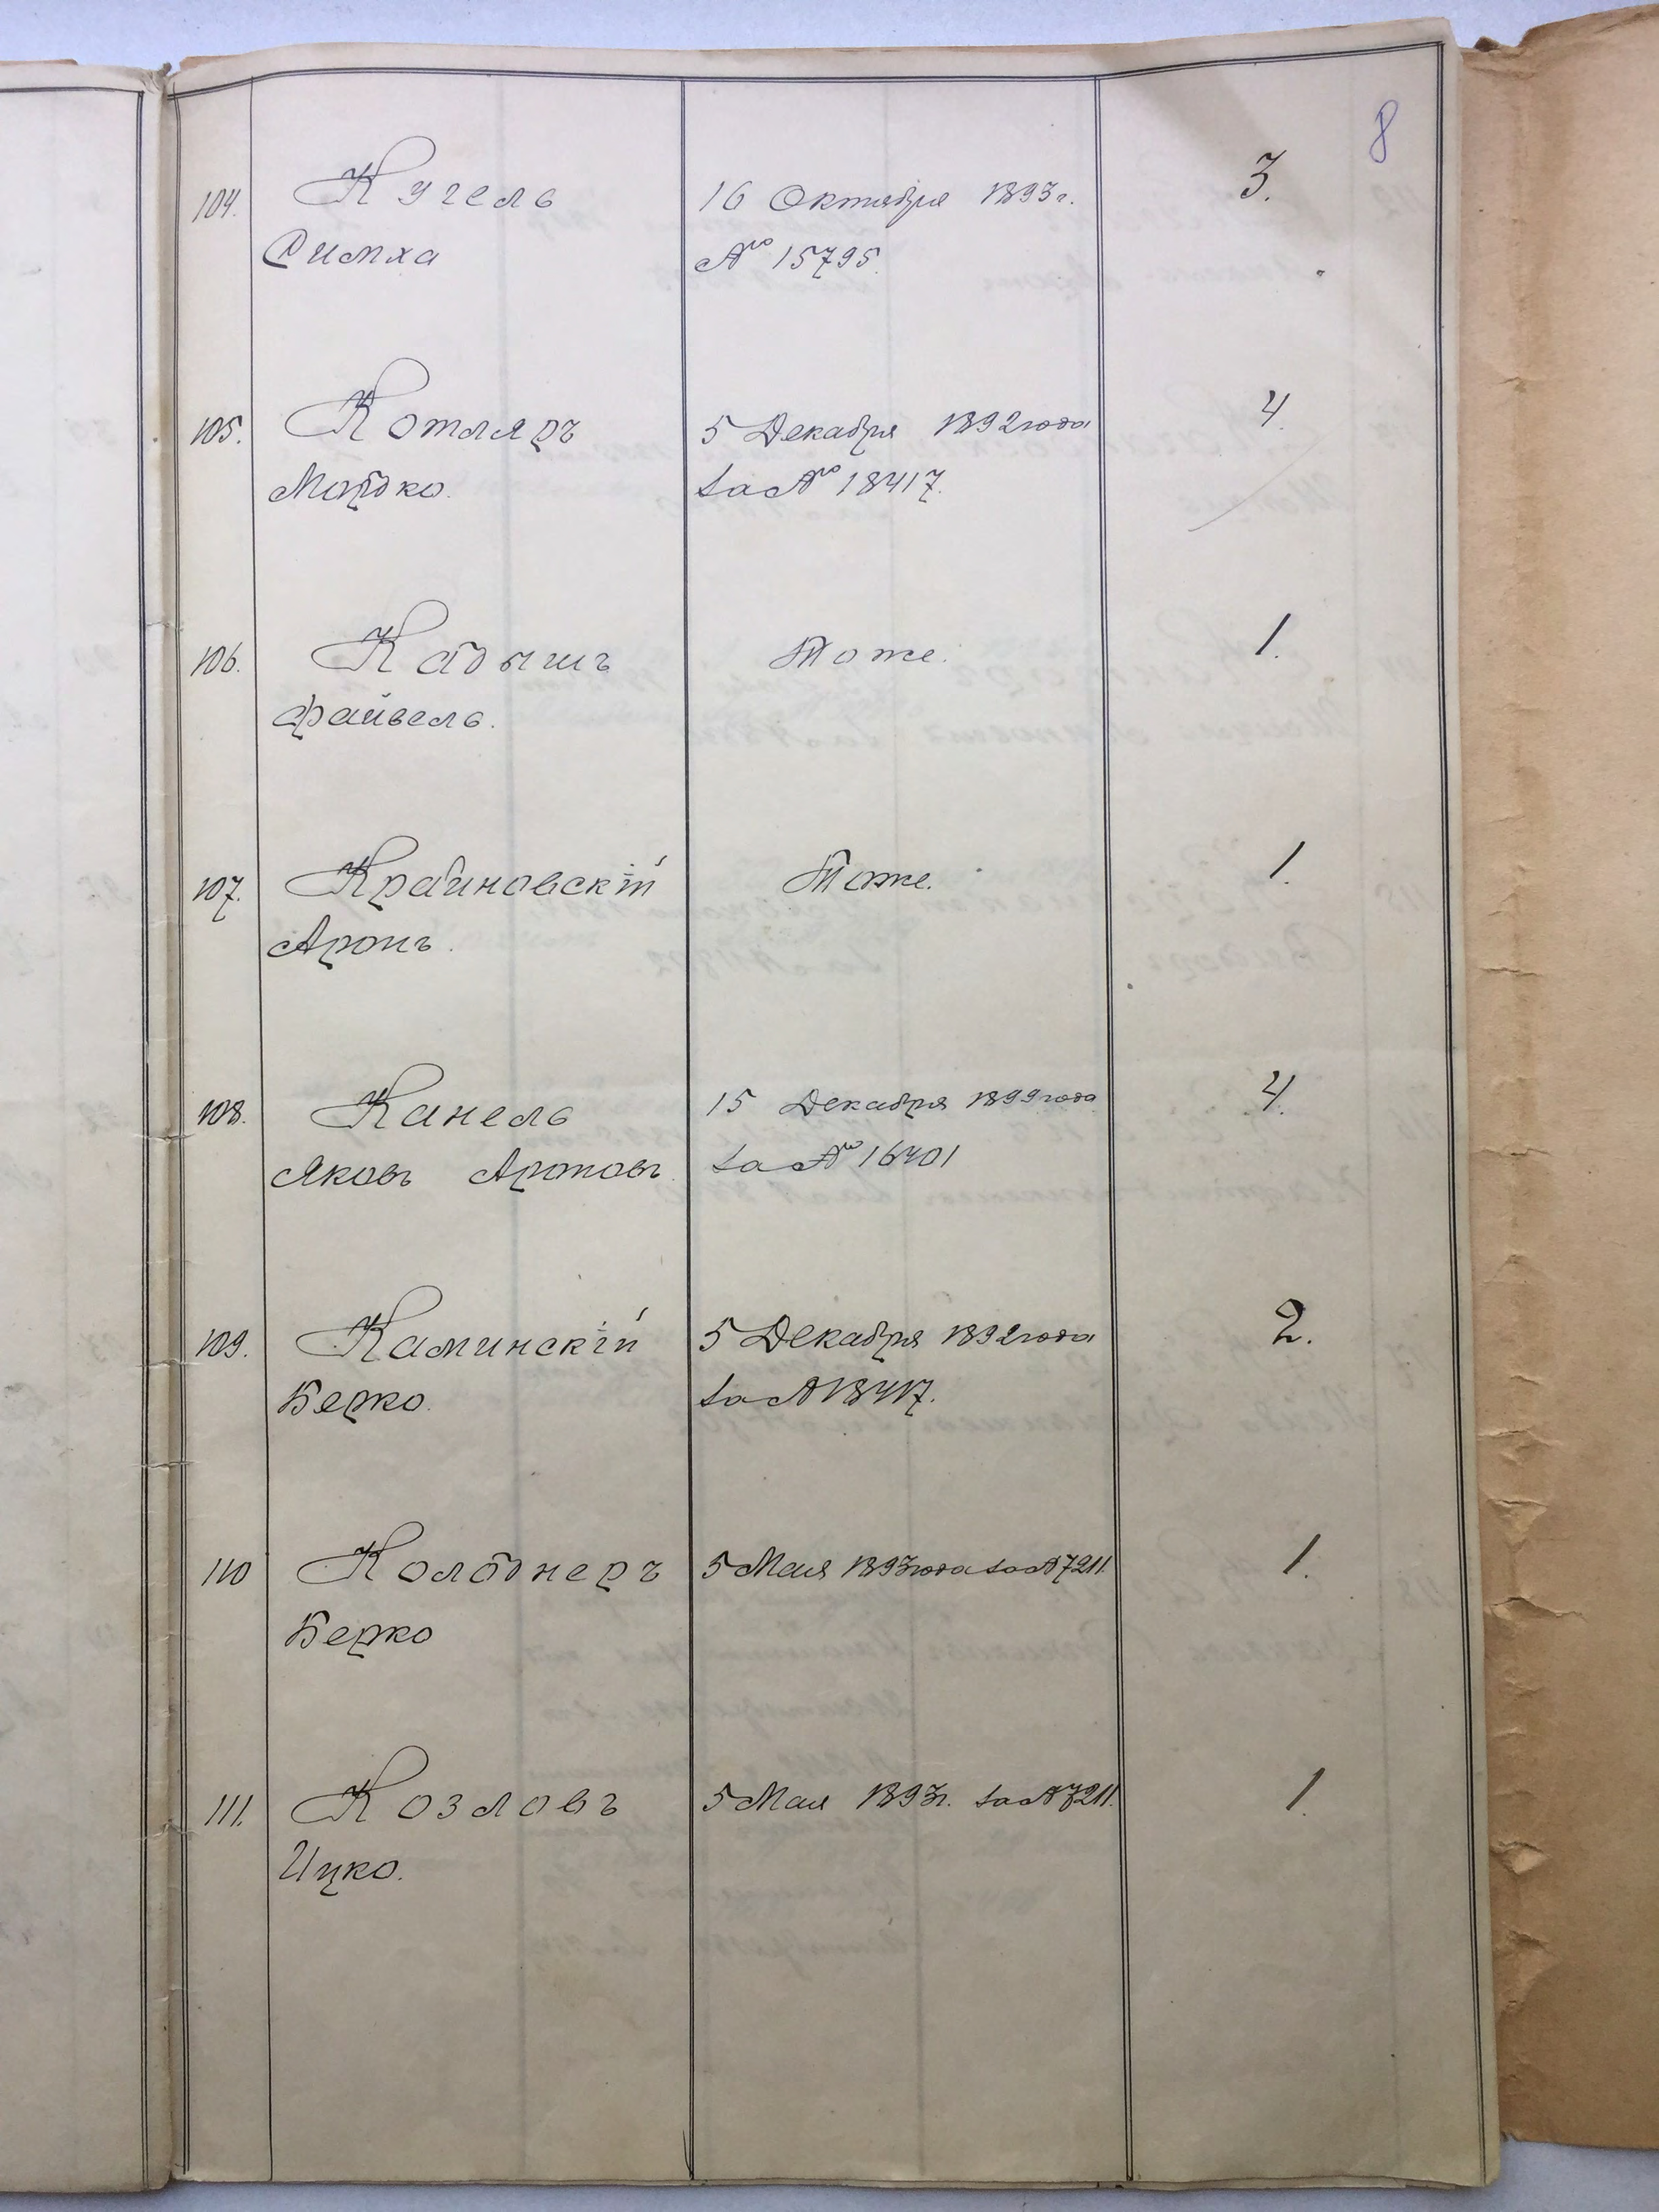 8
104. Кугель 16 Октября 1893 г. 3.
Симха № 15795.
105. Котляръ 5 Декабря 1892 года 4.
Мордко. за № 18417.
106. Кадышъ Тоже. 1.
Файвель.
107. Крайновскій Тоже. 1.
Аронъ.
108. Канель 15 Декабря 1899 года 4.
Яковъ Ароновъ за № 16401
109. Каминскій 5 Декабря 1892 года 2.
Берко. за № 18417.
110 Колоднеръ 5 Мая 1893 года за № 7211. 1.
Берко
111. Козловъ 5 Мая 1893 г. за № 7211. 1.
Ицко.